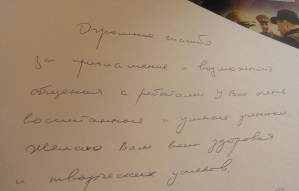 Огромное спасибо
за приглашение и возможность
общения с ребятами. У Вас очень
воспитанные и умные ученики.
Желаю Вам всем здоровья
и творческих успехов.